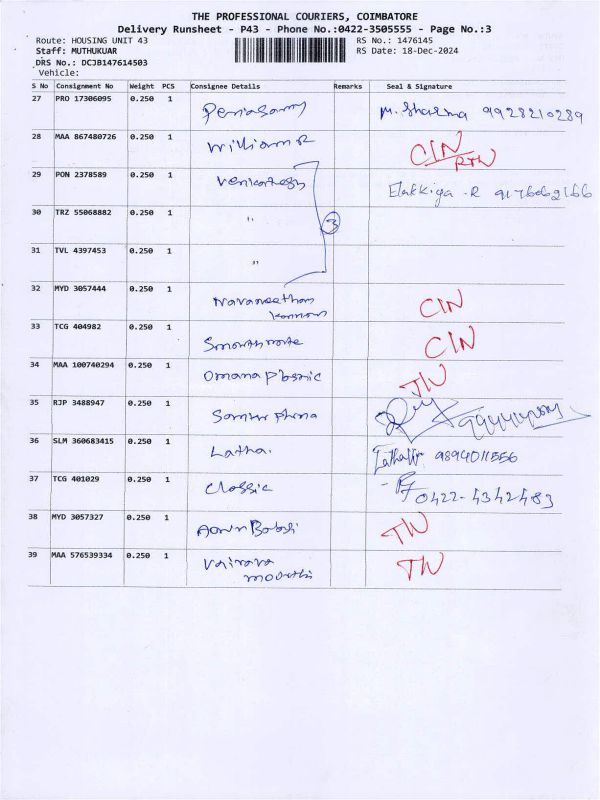 THE PROFESSIONAL COURIERS, COIMBATORE
Delivery Runsheet - P43 - Phone No.:0422-3505555 - Page No.:3
Route: HOUSING UNIT 43
RS No.: 1476145
Staff: MUTHUKUAR
RS Date: 18-Dec-2024
DRS No.: DCJB147614503
Vehicle:
S No Consignment No Weight PCS Consignee Details Remarks Seal & Signature
27 PRO 17306095 0.250 1 Periasamy M. Sharma 9928210289
28 MAA 867480726 0.250 1 William R CIN
RTN
29 PON 2378589 0.250 1 Venkatesh Elakkiya .R
30 TRZ 55068882 0.250 1 " 3
31 TVL 4397453 0.250 1 "
32 MYD 3057444 0.250 1 Navaneetha Kannan CIN
33 TCG 404982 0.250 1 CIN
34 MAA 100740294 0.250 1 Omana Plastic
35 RJP 3488947 0.250 1
36 SLM 360683415 0.250 1 Latha. Latha 9894011556
37 TCG 401029 0.250 1 Classic 0422-4342483
38 MYD 3057327 0.250 1
39 MAA 576539334 0.250 1 Vairava